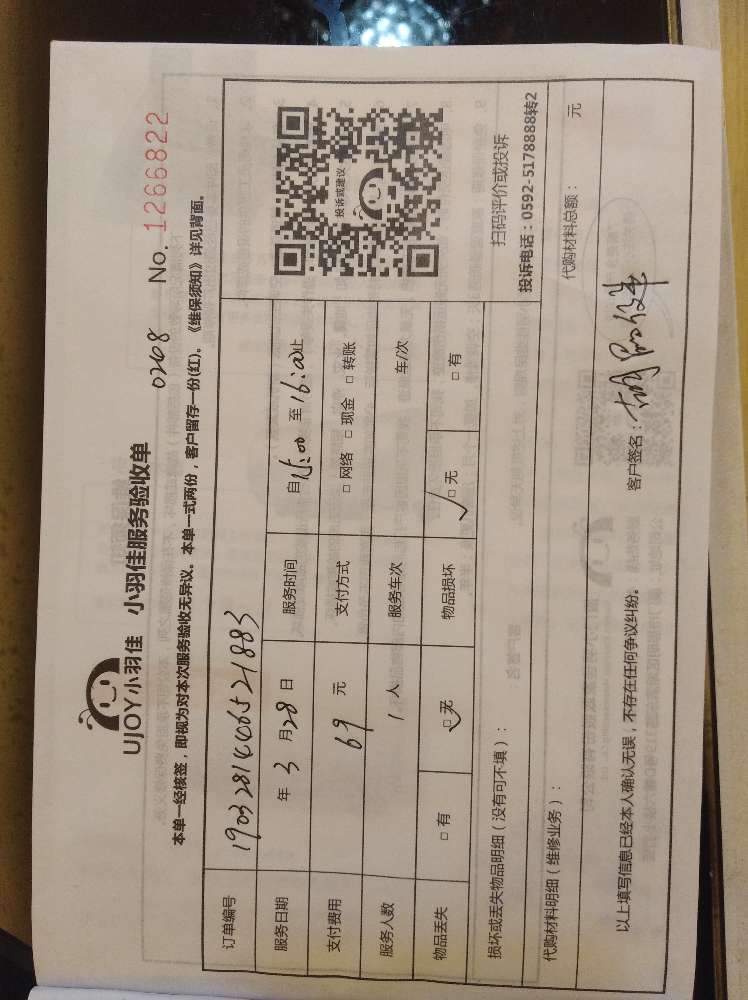 UJOY小羽佳 小羽佳服务验收单 0208 No. 1266822
本单一经核签，即视为对本次服务验收无异议。本单一式两份，客户留存一份(红)。《维保须知》详见背面。
订单编号 19032814406521883
服务日期 年 3 月 28 日 服务时间 自 15:00 至 16:00 止
支付费用 69 元 支付方式 □ 网络 □ 现金 □ 转账
服务人数 1 人 服务车次 车/次
物品丢失 □ 有 □ 无 物品损坏 □ 无 □ 有
投诉或建议
扫码评价或投诉
投诉电话：0592-5178888转2
损坏或丢失物品明细（没有可不填）：
代购材料明细（维修业务）： 代购材料总额： 元
以上填写信息已经本人确认无误，不存在任何争议纠纷。 客户签名：